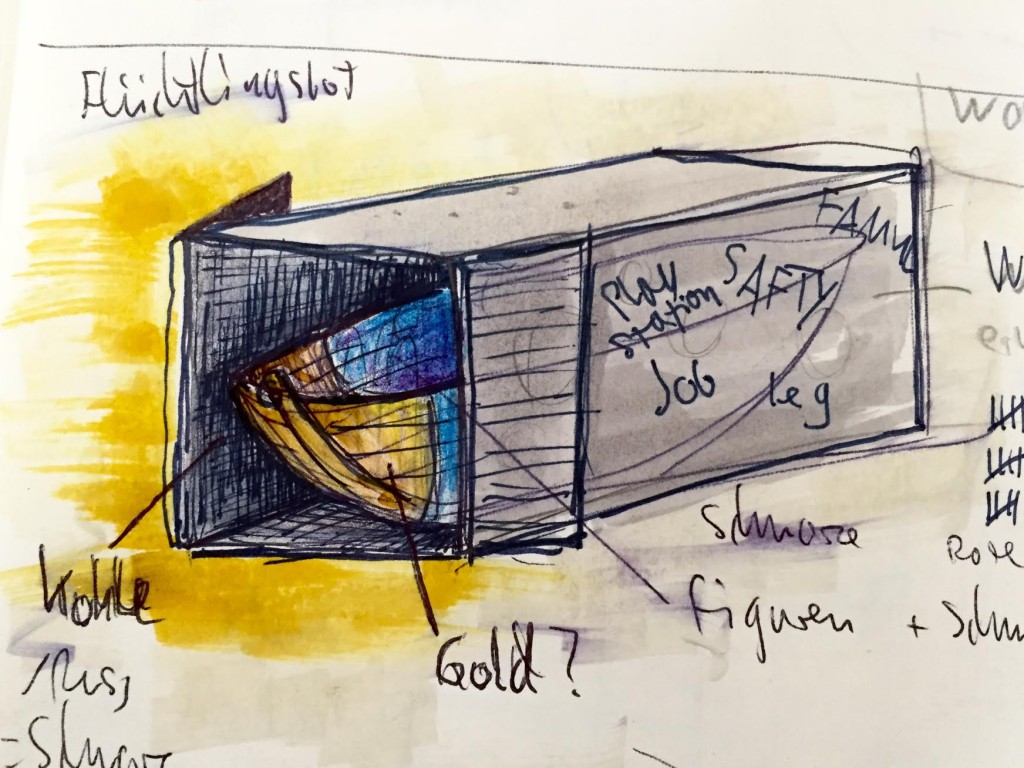 Flüchtlingsbot
Wo
FAMily
SAFTY
Play
station
Job
leg
W
schwarze
Kohle
Rote
figuren + Schw
Gold?
Russ
= Schwarz